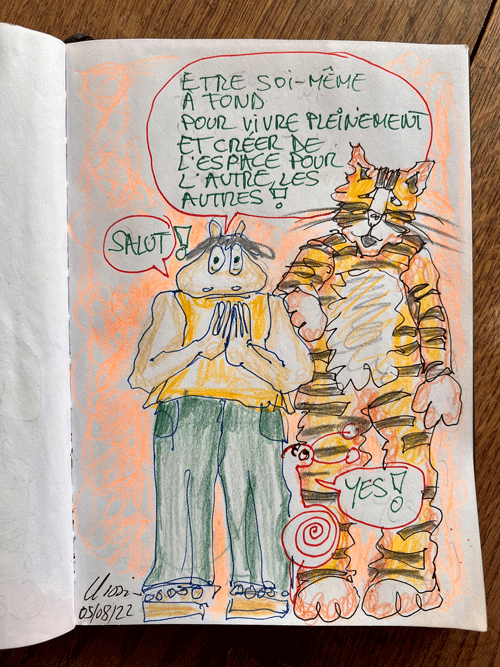 ETRE SOI-MÊME
A FOND
POUR VIVRE PLEINEMENT
ET CRÉER DE
L'ESPACE POUR
L'AUTRE, LES
AUTRES !
SALUT !
YES !
05/08/22